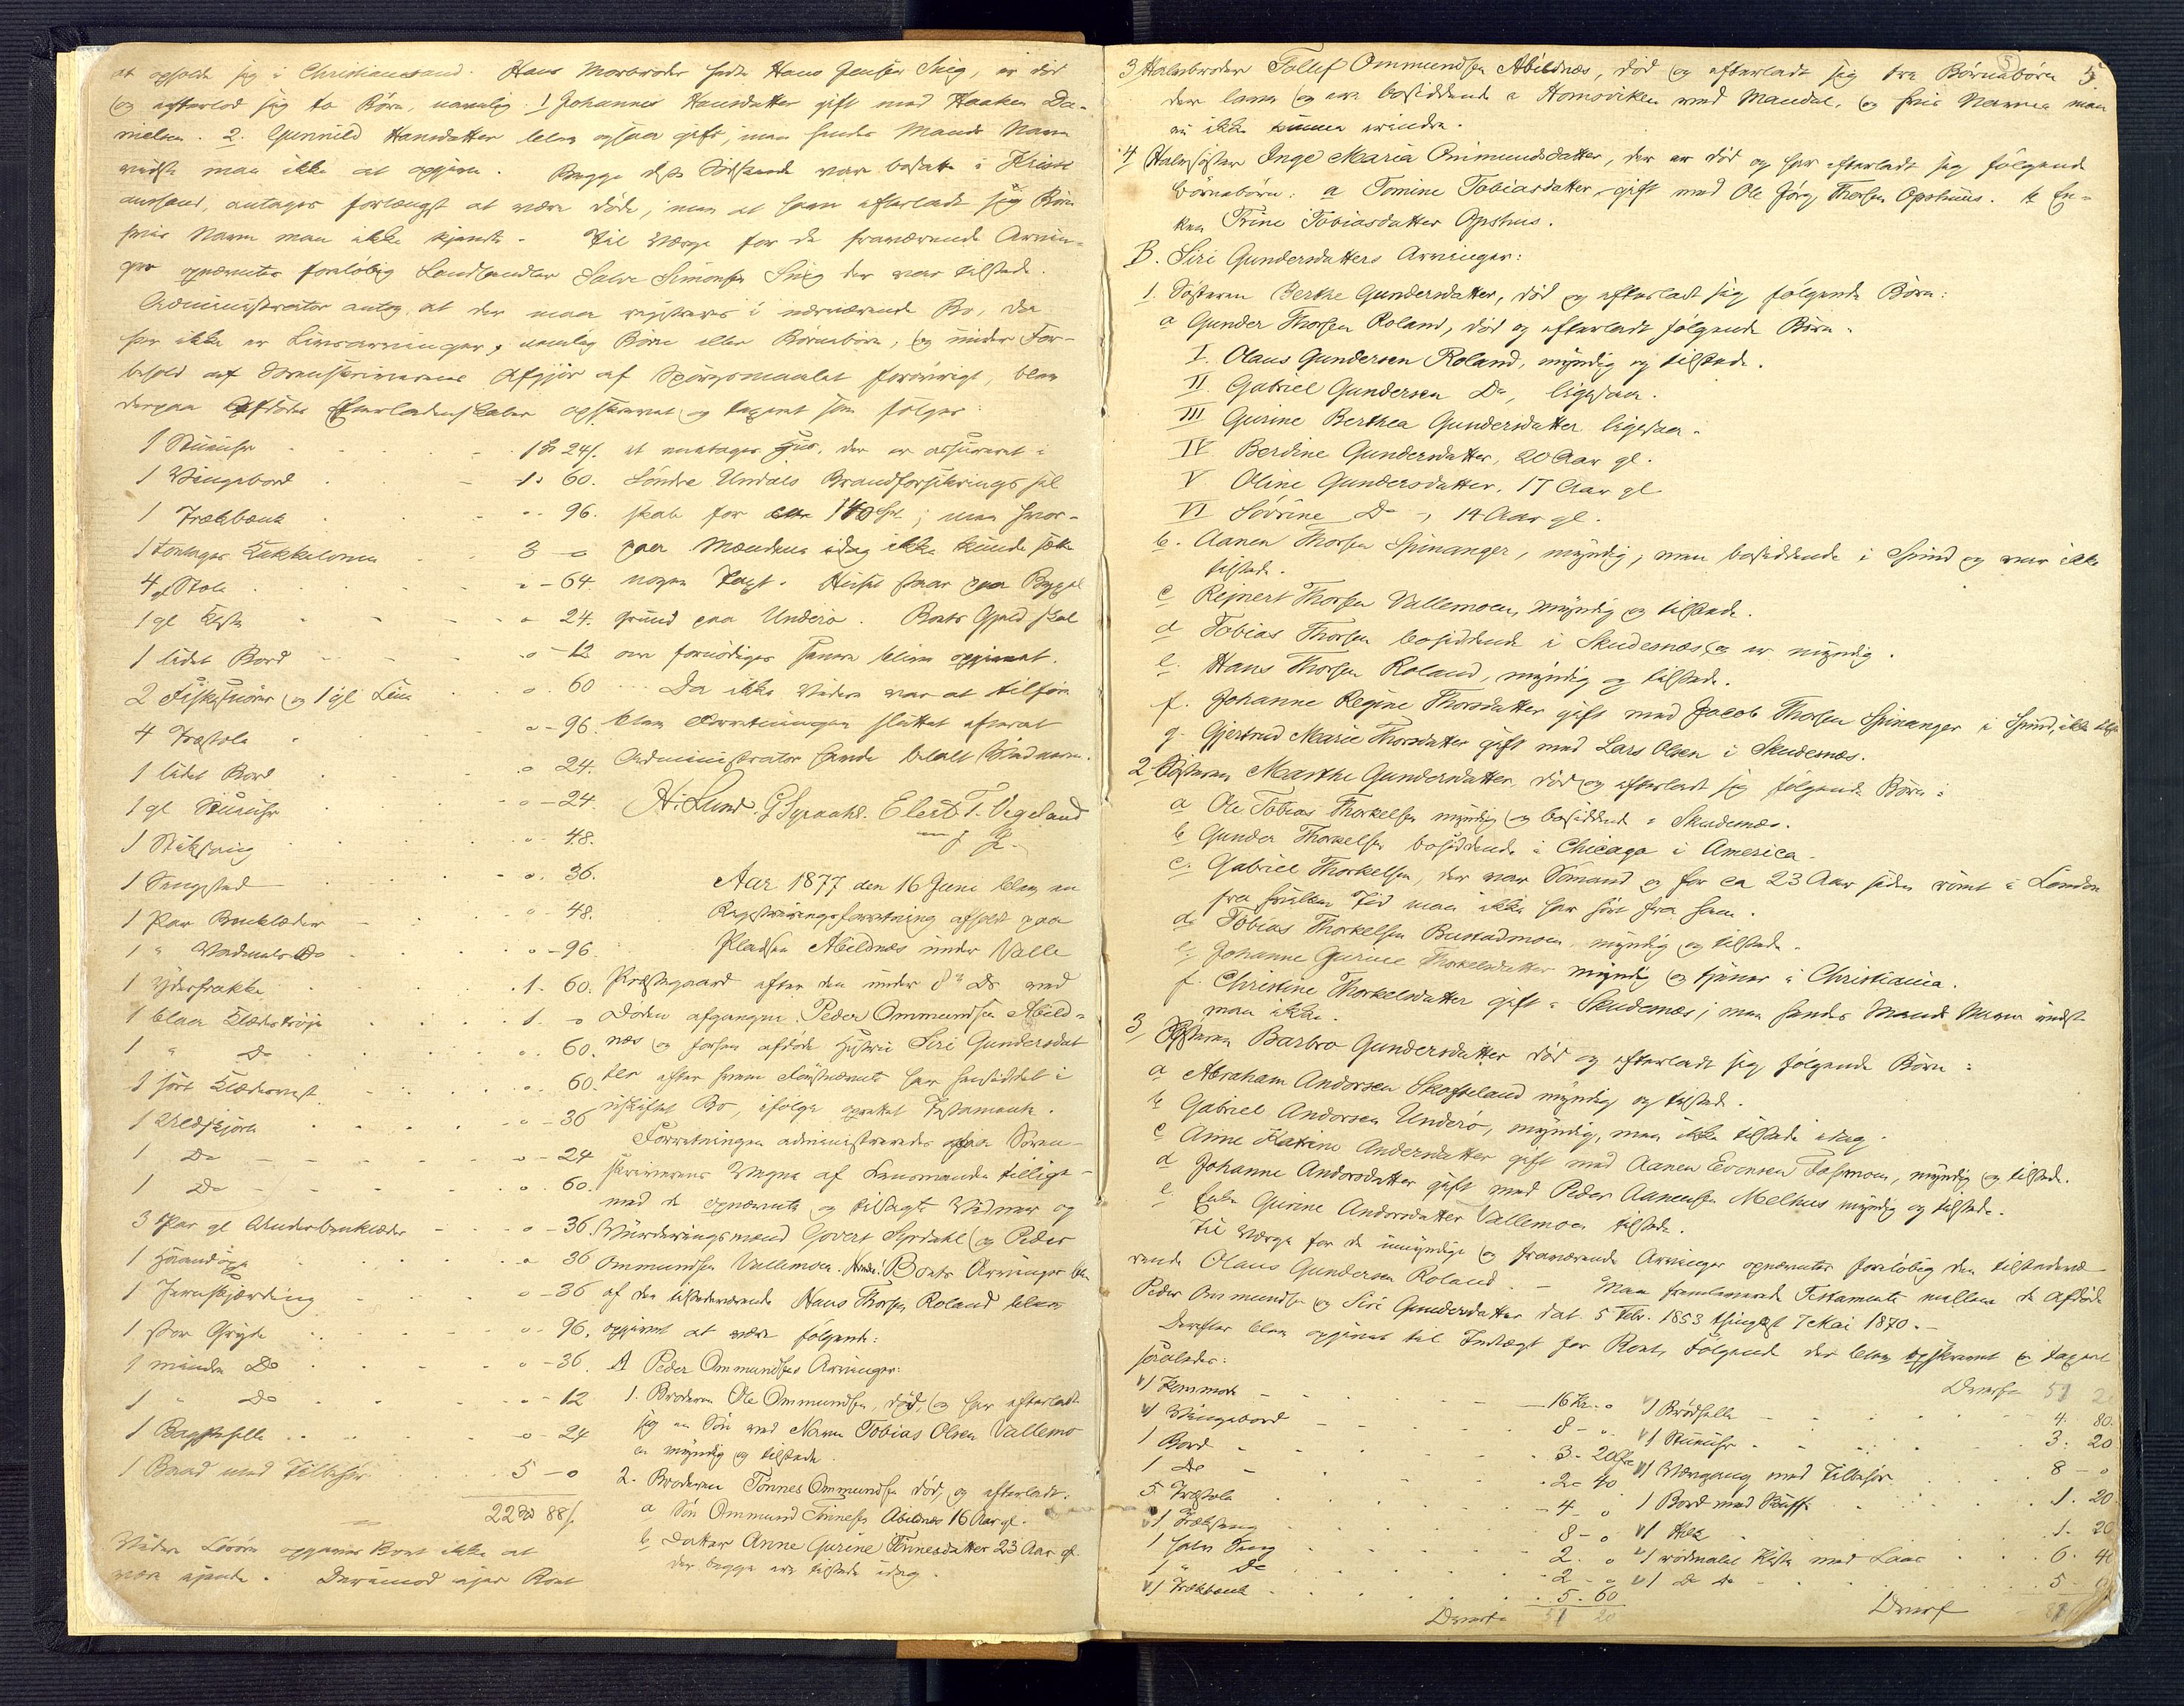 at opholde sig i Christianssand. Hans Morbroder hedte Hans Jensen Sæig, er død
og efterlod sig to Børn, navnlig 1 Johannes Hansdatter gift med Haaken Da-
nielsen. 2. Gunnild Hansdatter blev ogsaa gift, men hendes Mands Navn
vidste man ikke at opgive. Begge disse Søskende var bosatte i Kristi
ansand, antages forlængst at være døde, men at have efterladt sig Børn
hvis Navn man ikke kjendte. Til Værge for de fraværende Arvin-
ger opnævntes foreløbig Landhandler Salve Simonsen Sæig der var tilstede.
Administrator antog, at der maa registreres i nærværende Bo, da
her ikke er Livsarvinger, navnlig Børn eller Børnebørn, og under For-
behold af Sorenskriverens Afgjør af Spørgsmaalet forøvrigt, blev
derpaa Afdødes Efterladenskaber opskrevet og taxeret som følger:
1 Stueuhr 1 Sp 24 s.
1 Vingebord 1 " 60.
1 Trækbænk " - 96.
1 Kakkelovn 3 - "
4 gl Stole " - 64
1 gl Kiste " 24.
1 lidet Bord " - 12
2 Fiskesnører og 1 gl Line " 60
4 Træstole " - 96.
1 lidet Bord " 24.
1 gl Stueuhr " - 24
1 48.
1 Sengested " 36.
1 Par Benklæder " 48.
1 " Vadmels Do " - 96
1 Yderfrakke 1. 60.
1 blaa Klædestrøje 1. "
1 " Do " 60.
1 sort Klædesvest " 60.
1 Uldskjorte " - 36
1 Do " - 24
1 Do " 60.
3 Par gl Underbenklæder " - 36
1 Haandøxe " 36
1 " - 36
1 stor Gryde " 96.
1 mindre Do " - 36.
1 " Do " - 12
1 Bagstehelle " - 24
1 Baad med Tilbehør 5 - "
22 Spd 88 s.
Videre Løsøre opgaves Boet ikke at
være eiende. Derimod eier Boet
et enetages Hus, der er assureret i
Søndre Undals Brandforsikringssel
skab for 140 Spd; men hvor-
paa Mændene idag ikke kunde sætte
nogen Taxt. Huset staar paa Bygsel
grund paa Underø. Boets Gjæld skal
om fornødiges senere blive opgivet.
Da ikke videre var at tilføre
blev Forretningen sluttet efterat
Administrator havde betalt Vidnerne.
H. Lund. G Syrdahl. Elert T. Vegeland
Aar 1877 den 16 Juni blev en
Registreringsforretning afholdt paa
Pladsen Abildnæs under Valle
Præstegaard efter den under 8de ds ved
Døden afgangne Peder Ommundsen Abild-
næs og forhen afdøde Hustru Siri Gundersdat
ter efter hvem Førstnævnte har hensiddet i
uskiftet Bo, ifølge oprettet Testamente.
Forretningen administreredes paa Soren-
skriverens Vegne af Lensmanden tillige-
med de opnævnte og tilsagte Vidner og
Vurderingsmænd Govert Syrdahl og Peder
Ommundsen Vallemoen. Boets Arvinger blev
af den tilstedeværende Hans Thorsen Roland blev
opgivet at være følgende:
A Peder Ommundsens Arvinger:
1. Broderen Ole Ommundsen, død, og har efterladt
sig en Søn ved Navn Tobias Olsen Vallemo
en myndig og tilstede.
2. Broderen Tønnes Ommundsen død, og efterladt.
a Søn Ommund Tønnesen Abildnæs 16 Aar gl.
b Datter Anne Gurine Tønnesdatter 23 Aar gl
der begge ere tilstede idag.
5
3 Halvbroder Tollef Ommundsen Abildnæs, død og efterladt sig tre Børnebørn
der leve og ere bosiddende i Homsviken ved Mandal, og hvis Navne man
nu ikke kunne erindre.
4 Halvsøster Inge Maria Ommundsdatter, der er død og har efterladt sig følgende
Børnebørn: a Tomine Tobiasdatter gift med Ole Jørg. Thorsen Opshuus. b En-
ken Trine Tobiasdatter Opshus.
B. Siri Gundersdatters Arvinger:
1. Søsteren Berthe Gundersdatter, død og efterladt sig følgende Børn:
a Gunder Thorsen Roland, død og efterladt følgende Børn:
I. Olaus Gundersen Roland, myndig og tilstede.
II Gabriel Gundersen Do, ligesaa.
III Gurine Berthea Gundersdatter ligesaa.
IV Berdine Gundersdatter, 20 Aar gl.
V Oline Gundersdatter, 17 Aar gl
VI Sørine Do -, 14 Aar gl.
b. Aanen Thorsen Spinanger, myndig, men bosiddende i Spind og var ikke
tilstede.
c Reinert Thorsen Vallemoen, myndig og tilstede.
d Tobias Thorsen bosiddende i Skudesnæs og er myndig.
e. Hans Thorsen Roland, myndig og tilstede.
f. Johanne Regine Thorsdatter gift med Jacob Thorsen Spinanger i Spind, ikke tilst.
g. Gjertrud Marie Thorsdatter gift med Lars Olsen i Skudesnæs.
2 Søsteren Marthe Gundersdatter, død og efterladt sig følgende Børn:
a Ole Tobias Thorkelsen myndig og bosiddende i Skudesnæs.
b Gunder Thorkelsen bosiddende i Chicago i America.
c. Gabriel Thorkelsen, der var Sømand og for ca 23 Aar siden rømt i London
fra hvilken Tid man ikke har hørt fra ham.
d. Tobias Thorkelsen Bustadmoen, myndig og tilstede.
e. Johanne Gurine Thorkelsdatter myndig og tjener i Christiania.
f. Christine Thorkelsdatter gift i Skudesnæs; men hendes Mands Navn vidste
man ikke.
3, Søsteren Barbro Gundersdatter død og efterladt sig følgende Børn:
a Abraham Andorsen Skofteland myndig og tilstede.
b Gabriel Andorsen Underø, myndig, men ikke tilstede idag.
c Anne Katrine Andersdatter gift med Aanen Evensen Fossmoen, myndig og tilstede.
d Johanne Andorsdatter gift med Peder Aanensen Melhus myndig og tilstede.
e. Enke Gurine Andorsdatter Vallemoen tilstede.
Til Værge for de umyndige og fraværende Arvinger opnævntes foreløbig den tilstedevæ-
rende Olaus Gundersen Roland. - Man fremlagde Testamente mellem de afdøde
Peder Ommundsen og Siri Gundersdatter dat. 5 Febr. 1853 thinglæst 7 Mai 1870.-
Derefter blev opgivet til Indtægt for Boet, følgende der blev opskrevet og taxeret
saaledes:
1 Kommode 16 Kr. "
1 Vingebord 8 - "
1 Bord 3 - 20 Øre
1 Do 2 - 40
5 Træstole 4 - "
1 Træksæng 8 - "
1 halv Seng 2. "
1 " Do 2 - "
1 Trækbænk 5. 60
Transp 51 20
Transp 51 20
1 Brødhelle 4. 80.
1 Stueuhr 3. 20
1 Vævgang med Tilbehør 8 - "
1 Bord med Skuffe 1. 20
1. 20
1 rødmalet Kiste med Laas 6. 40
1 Do do 5 -
Transp